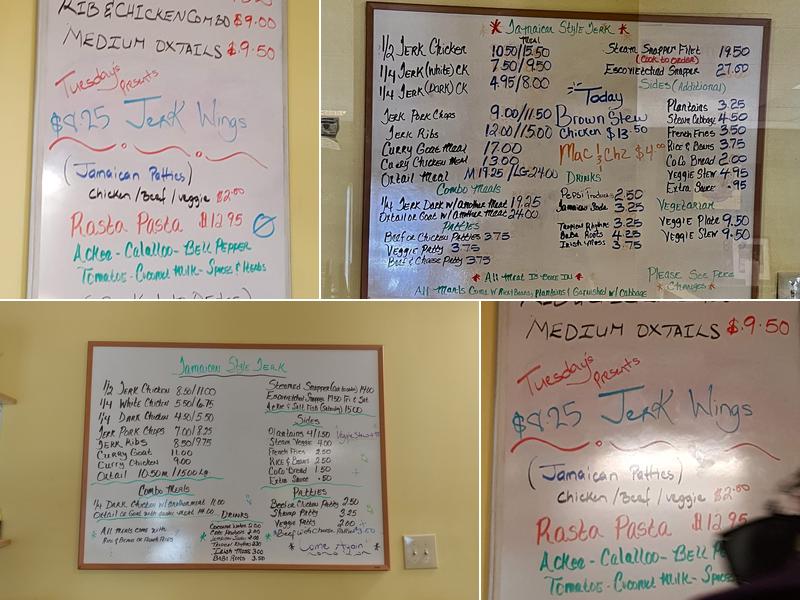 RIB & CHICKEN COMBO $9.00
MEDIUM OXTAILS $9.50
Tuesday's
Presents
$8.25 Jerk Wings
(Jamaican Patties)
chicken/Beef/veggie $2.00
Rasta Pasta $12.95
Ackee - Calalloo - Bell Pepper
Tomatos - Coconut Milk - Spices & Herbs
*Jamaican Style Jerk*
Meal
1/2 Jerk Chicken 10.50/15.50
1/4 Jerk (White) CK 7.50/9.50
1/4 Jerk (Dark) CK 4.95/8.00
Jerk Pork Chops 9.00/11.50
Jerk Ribs 12.00/15.00
Curry Goat Meal 17.00
Curry Chicken Meal 13.00
Oxtail Meal M 19.25/LG 24.00
Combo Meals
1/4 Jerk Dark w/Another Meat 19.25
Oxtail or Goat w/Another Meat 24.00
Patties
Beef or Chicken Patties 3.75
Veggie Patty 3.75
Beef & Cheese Patty 3.75
Today
Brown Stew
Chicken $13.50
Mac & Chz $4.00
Drinks
Pepsi Products 2.50
Jamaican Soda 3.25
Tropical Rhythms 3.25
Baba Roots 4.25
Irish Moss 3.75
Steam Snapper Filet 19.50
(Cook to Order)
Escovietched Snapper 27.00
Sides (Additional)
Plantains 3.25
Steam Cabbage 4.50
French Fries 3.50
Rice & Beans 3.75
CoCo Bread 2.00
Veggie Stew 4.95
Extra Sauce .95
Vegetarian
Veggie Plate 9.50
Veggie Stew 9.50
*All Meat Is Bone In*
All Meals Come w/Rice/Beans, Plantains & Garnished w/Cabbage
Please See Price
*Changes*
Jamaican Style Jerk
1/2 Jerk Chicken 8.50/11.00
1/4 White Chicken 5.50/6.75
1/4 Dark Chicken 4.50/5.50
Jerk Pork Chops 7.00/8.25
Jerk Ribs 8.50/9.75
Curry Goat 11.00
Curry Chicken 9.00
Oxtail 10.50m/15.00Lg
Combo Meals
1/4 Dark Chicken w/another meat 11.00
Oxtail or Goat with another meat
* All meals come with
Rice & Beans or French Fries
Drinks
Irish Moss 3.00
Baba Roots 3.50
Steamed Snapper
Escovietched Snapper 17.50
Ackee & Salt Fish (Saturday) 15.00
Sides
Plantains 4/1.50
Steam Veggie 4.00
French Fries 2.50
Rice & Beans 2.50
CoCo Bread 1.50
Extra Sauce .50
Veggie Stew
Patties
Beef or Chicken Patty 2.50
Shrimp Patty 3.25
Veggie Patty 2.00
*Beef with Cheese Patty
* Come Again *
MEDIUM OXTAILS $9.50
Tuesday's
Presents
$8.25 Jerk Wings
(Jamaican Patties)
chicken/Beef/veggie $2.00
Rasta Pasta $12.95
Ackee - Calalloo - Bell
Tomatos - Coconut Milk -